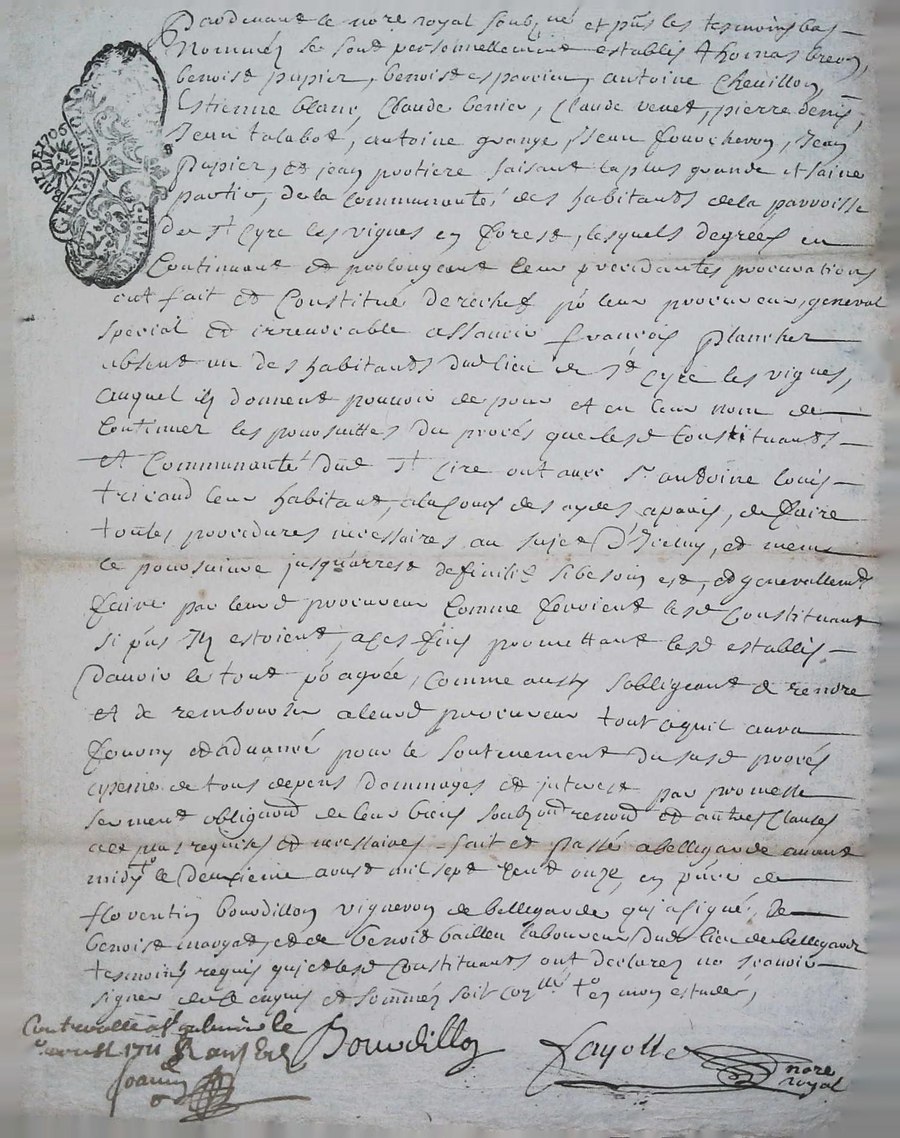 Pardevant le nore royal soubzné et pns les tesmoins bas
nommés se sont personnellement establis thomas
benoist pupier, benoist espercieu, antoine Chevillon,
Estienne blanc, Claude benier, Claude venet, pierre denis,
Jean talabot, antoine grange, Jean fourcheron, Jean
pupier, et jean protiere faisant la plus grande et saine
partie, de la communauté des habitants de la parroisse
de St Cyre les vignes en forest, lesquels de grees en
Continuant et prolongeant leur precedantes procurations
ont fait et Constitué derechef pr leur procureur general
special et irrevocable françois plancher
absent un des habitants dud lieu de St Cyre les vignes,
auquel ilz donnent pouvoir de pour et en leur nom de
Continuer les poursuittes du procés que lesd Constituants
et Communauté dud St Cire ont avec sr antoine louis
tricaud leur habitant, a la Cour des aydes a paris, de faire
touttes procedures necessaires au sujet d'Iceluy, et mesme
le poursuivre jusqu'arrest definitif si besoin est, et generallement
faire par leurd procureur Comme feroient lesd Constituant
si pns Ilz estoient, a ces fins promettant lesd establis
d'avoir le tout pr agrée, Comme aussy s'obligeant de rendre
et de rembourser a leurd procureur tout ce qu'il aura
fourny et advancé pour le soutenement du susd procés
a peine de tous depens dommages et interest par promesse
serment obligaon de leur biens soubzon renon et autres Clauses
a ce plus requises et necessaires fait et passé a bellegarde avant
midy le deuxieme aoust mil sept Cent onze, en pnce de
florentin bourdillon vigneron de bellegarde qui a signé, de
benoist et de benoist laboureur dud lieu de bellegarde
tesmoins requis qui et lesd Constituants ont declarez ne scavoir
signer de ce enquis et sommés
Controllé a st galmier le
aoust 1711
Bourdillon
fayolle
nore
royal
GEN. DE LION